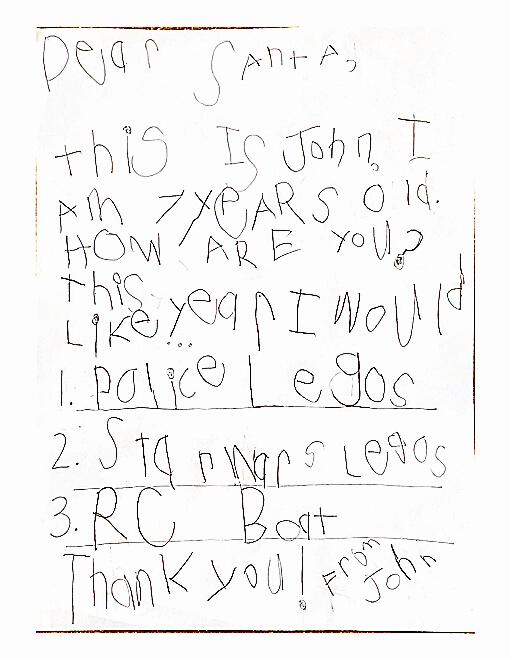 Dear Santa,
this Is John, I
Am 7 yeARS old.
HOW ARE you?
this year I would
Like...
1. Police Legos
2. Star wars Legos
3. RC Boat
Thank you! From John